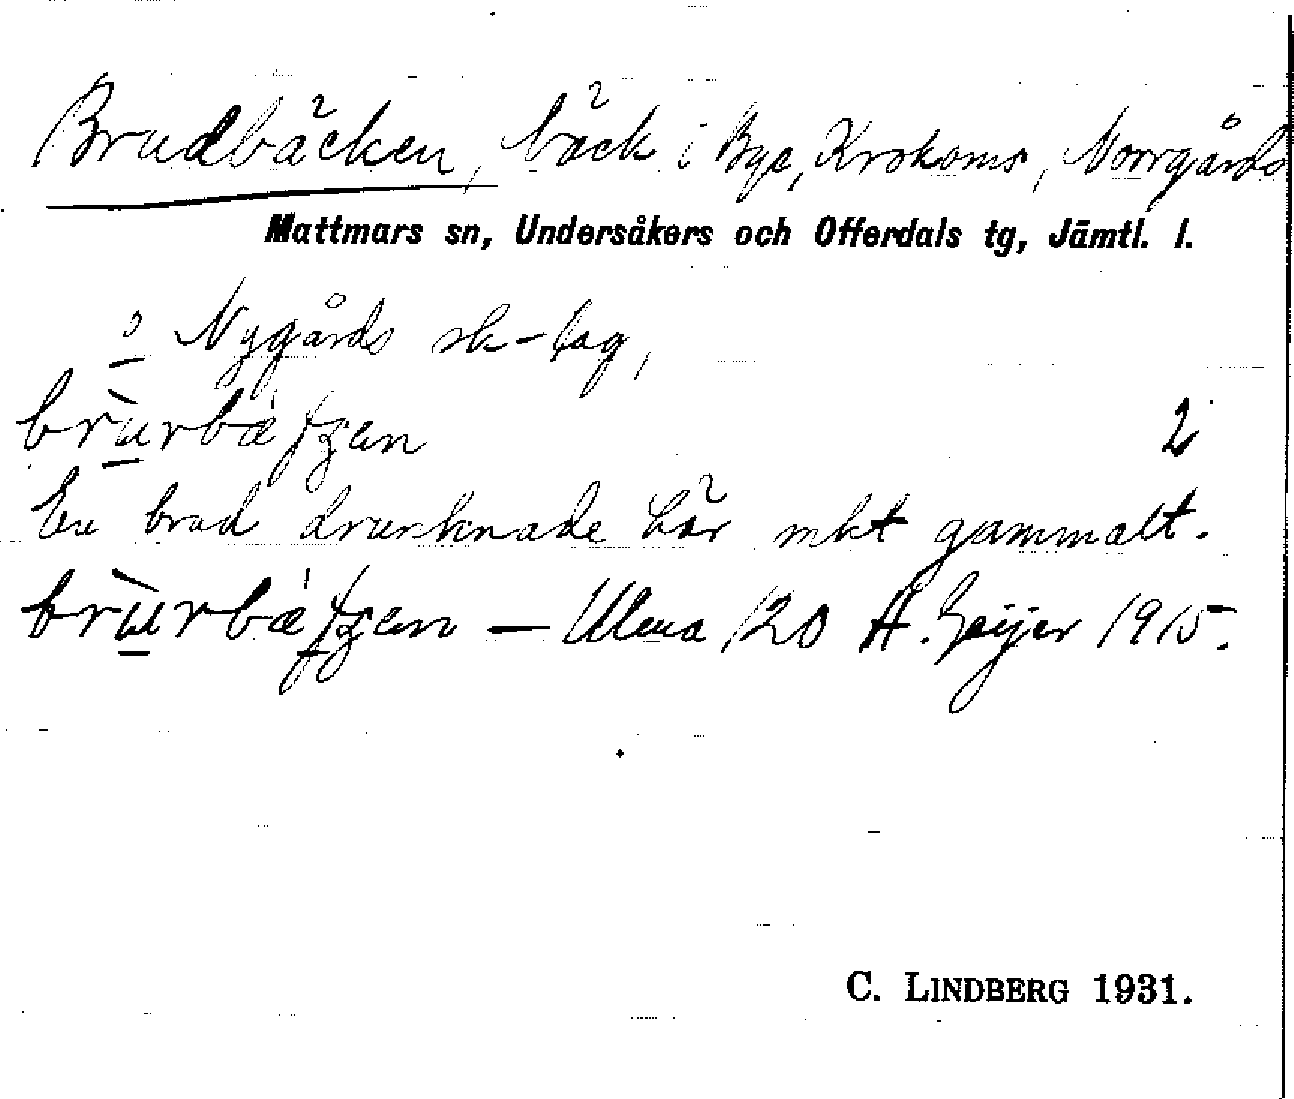 Brudbäcken, bäck i Bye, Krokoms, Norrgårds
Mattmars sn, Undersåkers och Offerdals tg, Jämtl. l.
o Nygårds sk-lag,
brùrbæ̀ʈʂen 2
En brud drunknade här mkt gammalt.
brùrbæ̀ʈʂen — Ulma 120 Å. Geijer 1915.
C. LINDBERG 1931.